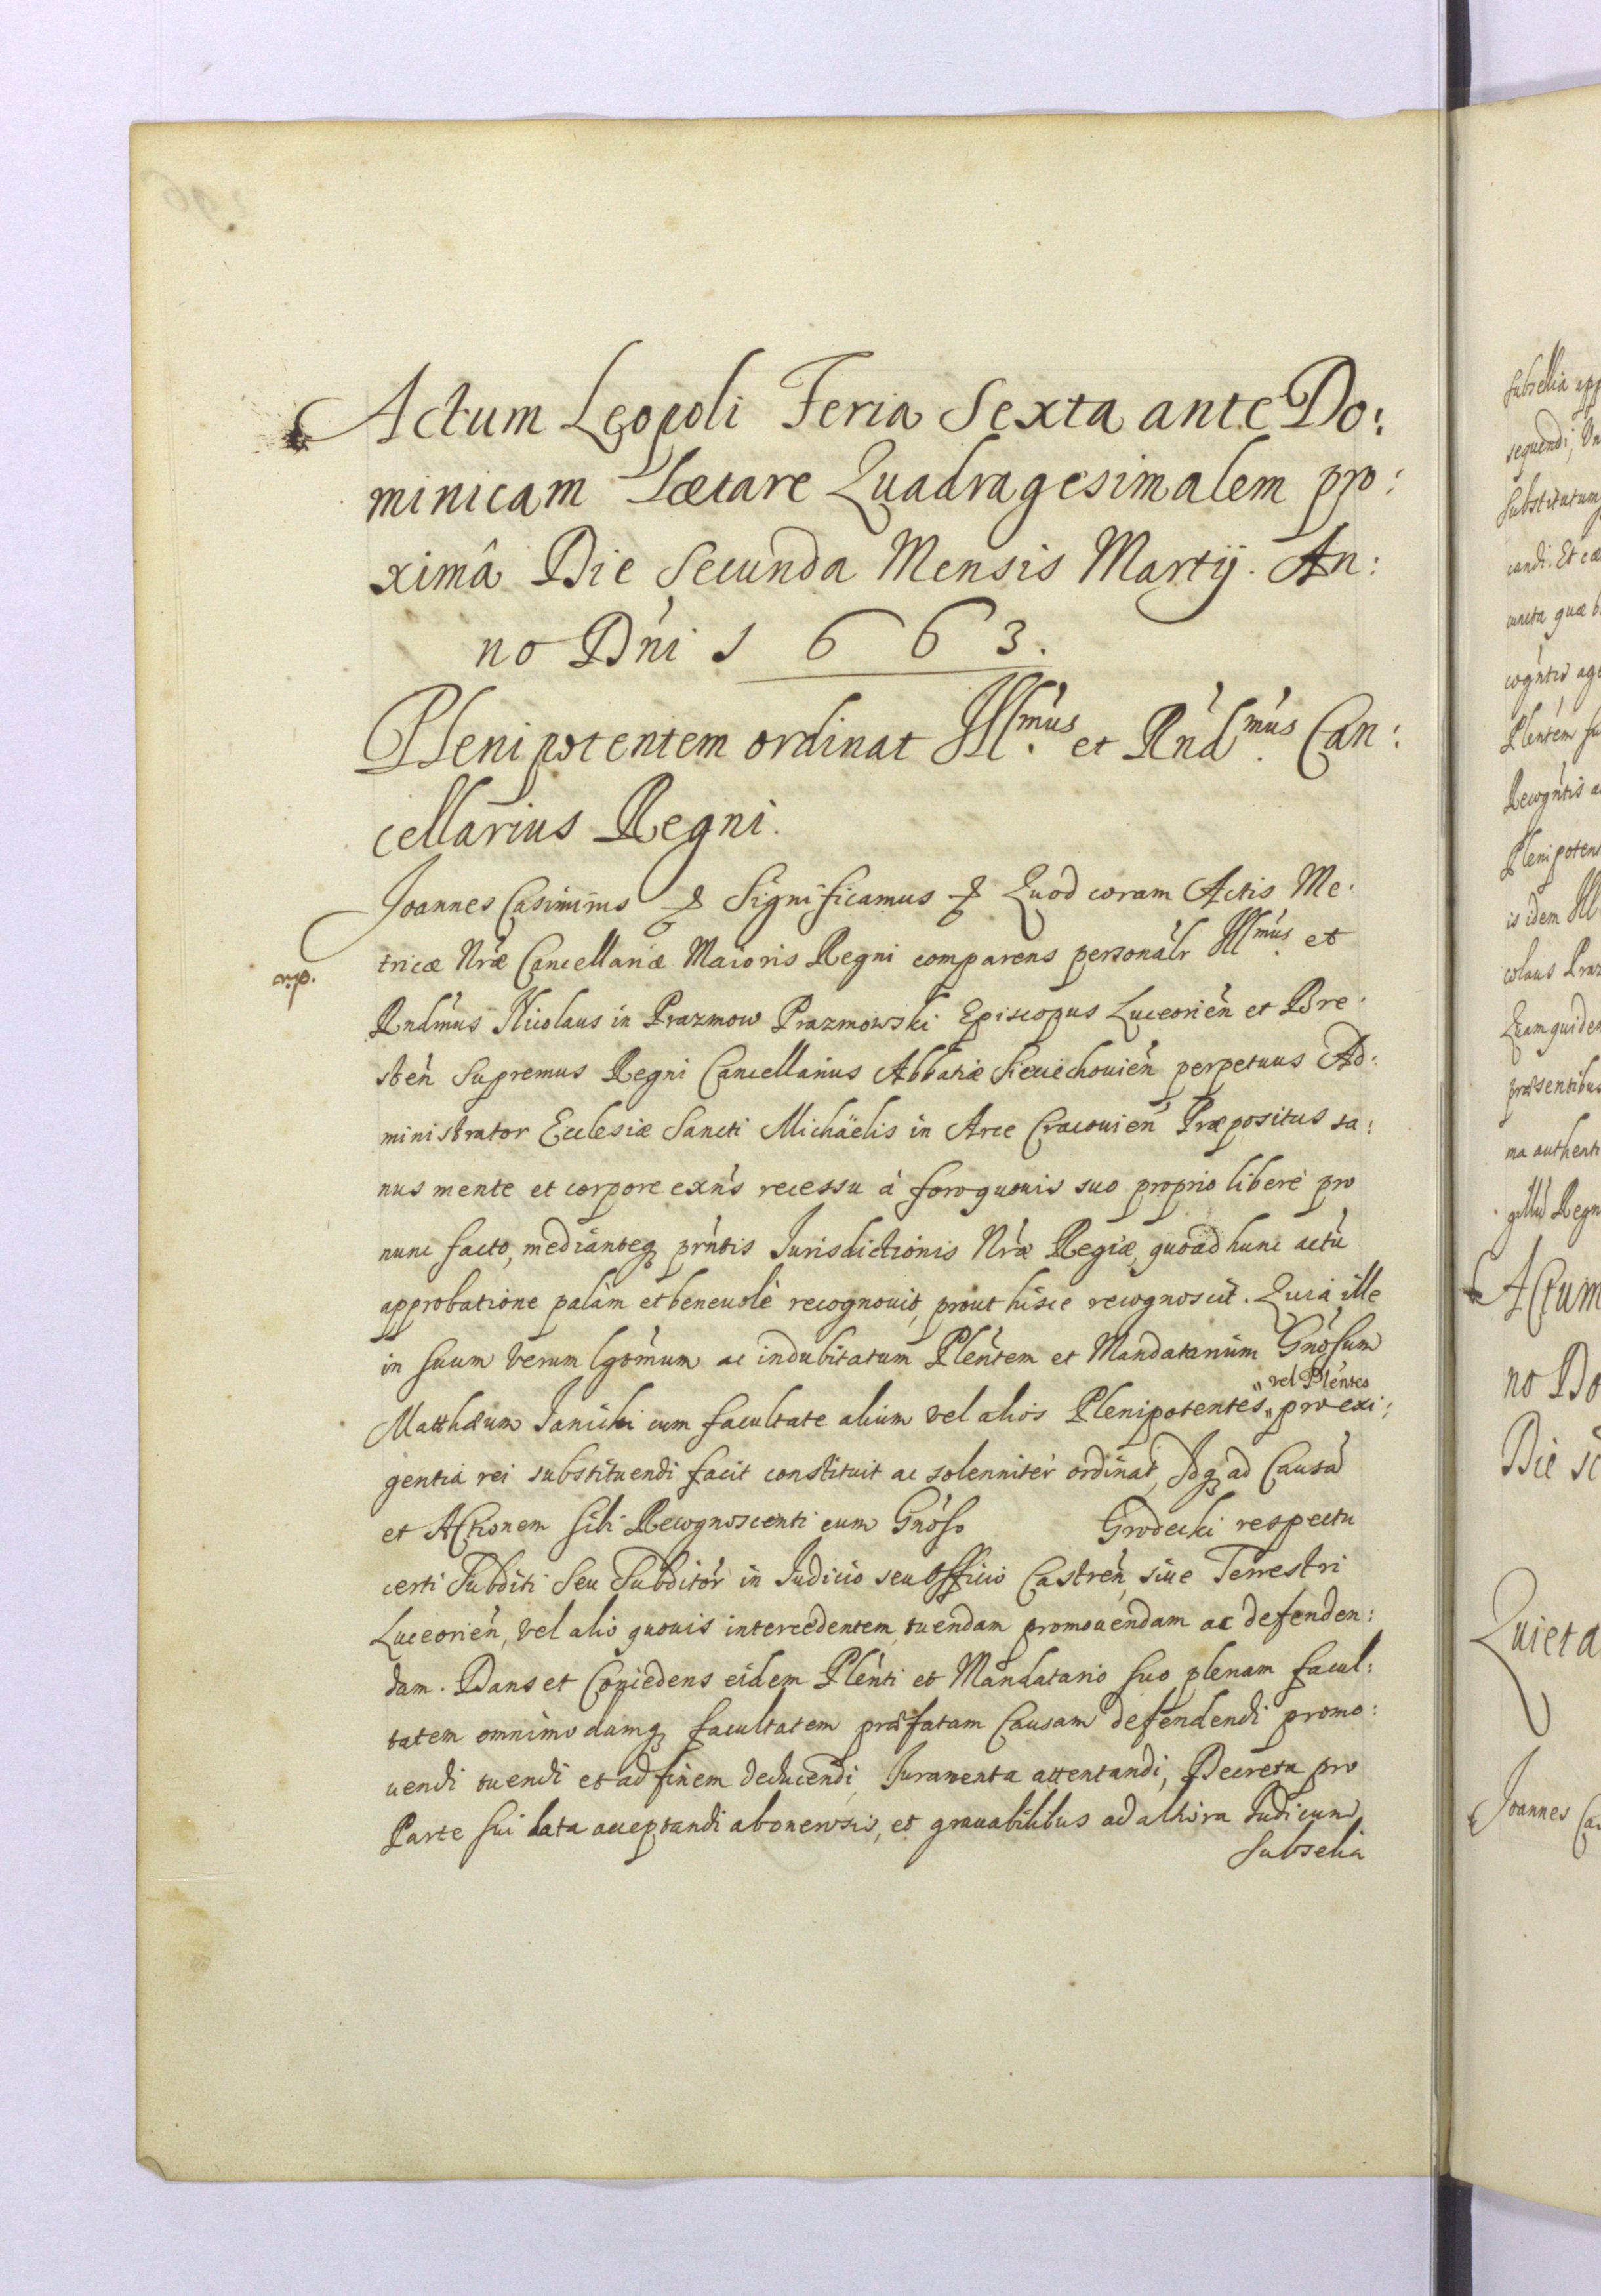 Actum Leopoli Feria Sexta ante Do:
minicam Lætare Quadragesimalem pro:
ximâ Die Secunda Mensis Martij. An:
no Dńi 1663.
Plenipotentem ordinat Ill.mús et Rńd.mús Can:
cellarius Regni.
Joannes Casimirus & Significamus & Quod coram Actis Me:
tricæ Nræ Cancellariæ Maioris Regni comparens personalr Ill.mús et
Rndmús Nicolaus in Prazmow Prazmowski Episcopus Luceorień et Bre:
steń Supremus Regni Cancellarius Abbatiæ Sieciechovień perpetuus Ad:
ministrator Ecclesiæ Sancti Michäelis in Arce Cracovień Præpositus sa:
nus mente et corpore exńs recessu à foroquouis suo proprio liberè pro
nunc facto, medianteq prńtis Jurisdictionis Nræ Regiæ, quoad hunc actú
approbatione palàm et beneuolè recognouit, prout hisce recognoscit. Quia, ille
in suum verum lgtómum ac indubitatum Pleńtem et Mandatarium Gnósum
Matthæum Janicki cum facultate alium vel alios Plenipotentes " vel Pleńtes " pro exi:
gentia rei substituendi facit constituit ac solenniter ordinat, Idq ad Causá
et Actionem sibi Recognoscenti cum Gnóso Grodecki respectu
certi Subditi Seu Subditór in Judicio seu Officio Castreń siue Terrestri
Luceorień, vel alio quouis intercedentem, tuendam promouendam ac defenden:
dam. Dans et Concedens eidem Pleńti et Mandatario suo plenam facul:
tatem omnimodamq facultatem præfatam Causam defendendi promo:
uendi tuendi et ad finem deducendi, Juramenta attentandi, Decreta pro
Parte sui lata acceptandi ab onerosis, et grauabilibus ad altiora Judicum
Subselia